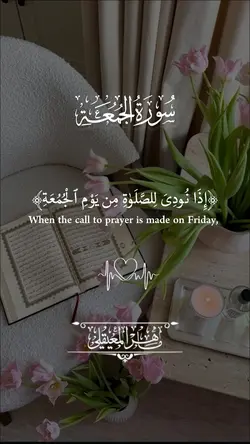 سُورَةُ الجُمُعَةِ
﴿إِذَا نُودِىَ لِلصَّلَوٰةِ مِن يَوْمِ ٱلْجُمُعَةِ﴾
When the call to prayer is made on Friday,
ماهر المعيقلي